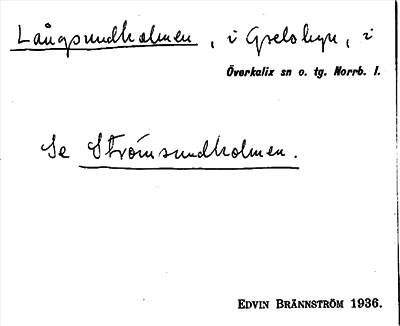 Långsundholmen, i Gselohyn, i
Överkalix sn o. tg. Norrb. l.
Se Strömsundholmen.
EDVIN BRÄNNSTRÖM 1936.